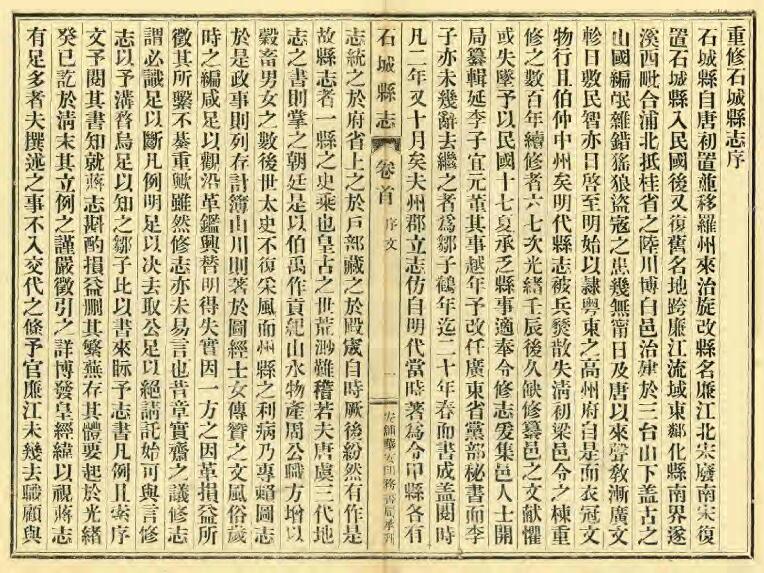 重修石城縣志序
石城縣自唐初置並移羅州來治旋改縣名廉江北宋廢南宋復
置石城縣入民國後又復舊名地跨廉江流域東鄰化縣南界遂
溪西毗合浦北抵桂省之陸川博白邑治建於三台山下蓋古之
山國編氓雜錯猺狼盜寇之患幾無甯日及唐以來聲敎漸廣文
軫日敷民智亦日啓至明始以隸粤東之高州府自是而衣冠文
物行且伯仲中州矣明代縣志被兵燹散失清初梁邑令之棟重
修之數百年續修者六七次光緒壬辰後久缺修纂邑之文獻懼
或失墜予以民國十七夏承乏縣事適奉令修志爰集邑人士開
局纂輯延李子宜元董其事越年予改任廣東省黨部秘書而李
子亦未幾辭去繼之者爲鄒子鶴年迄二十年春而書成蓋閱時
凡二年又十月矣夫州郡立志仿自明代當時著爲令甲縣各有
石城縣志
卷首
序文
一
志統之於府省上之於戶部藏之於殿宬自時厥後紛然有作是
故縣志者一縣之史乘也皇古之世荒渺難稽若夫唐虞三代地
志之書則掌之朝廷是以伯禹作貢紀山水物產周公職方增以
穀畜男女之數後世太史不復采風而州縣之利病乃專端圖志
於是政事則列存計簿山川則著於圖經士女傳贊之文風俗歲
時之編咸足以觀沿革鑑興替明得失實因一方之因革損益所
徵其所繫不綦重歟雖然修志亦未易言也昔章實齋之議修志
謂必識足以斷凡例明足以决去取公足以絕請託始可與言修
志以予溝瞀烏足以知之鄒子比以書來眎予志書凡例且索序
文予閱其書知就蔣志斟酌損益刪其繁蕪存其體要起於光緒
癸已訖於清末其立例之謹嚴徵引之詳博發皇經緯以視蔣志
有足多者夫撰述之事不入交代之條予官廉江未幾去職顧與